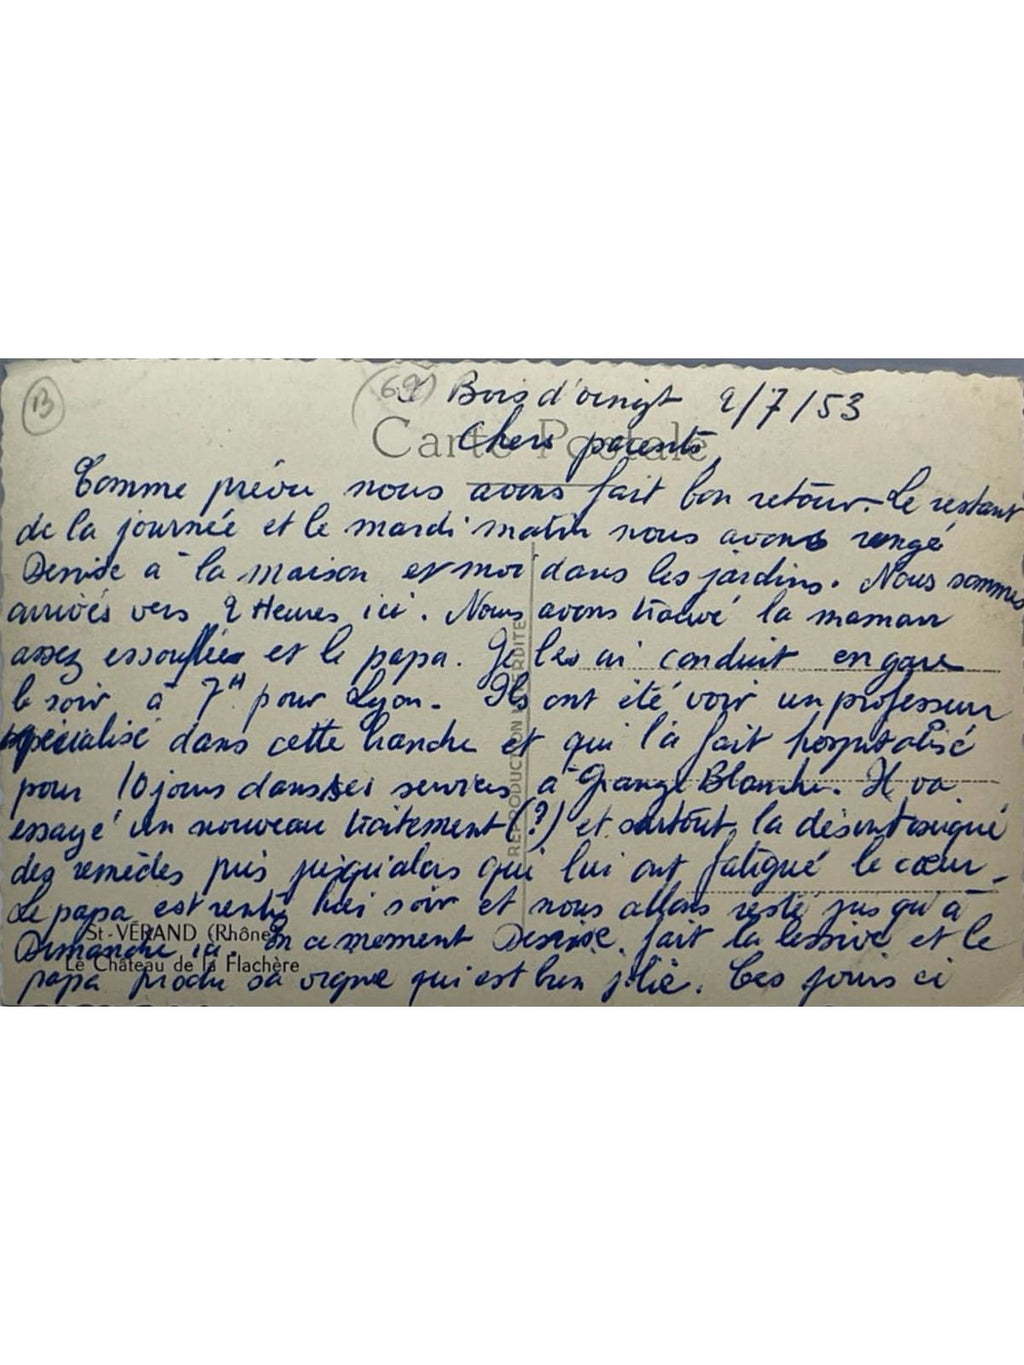 B
(69) Bois d'oingt 2/7/53
Carte Postale
Chers parents
Comme prévu nous avons fait bon retour. Le restant
de la journée et le mardi matin nous avons rangé
Denise à la maison et moi dans les jardins. Nous sommes
arrivés vers 2 Heures ici. Nous avons trouvé la maman
assez essouflée et le papa. Je les ai conduit en gare
le soir à 7H pour Lyon. Ils ont été voir un professeur
spécialisé dans cette branche et qui l'a fait hospitalisé
pour 10 jours dans ses services à Grange Blanche. Il va
essayé un nouveau traitement (?) et surtout la désintoxiqué
des remèdes pris jusqu'alors qui lui ont fatigué le cœur.
Le papa est rentré hier soir et nous allons resté jusqu'à
Dimanche ici. En ce moment Denise fait la lessive et le
papa sa vigne qui est bien jolie. Ces jours ci
St-VÉRAND (Rhône)
Le Château de la Flachère
REPRODUCTION INTERDITE